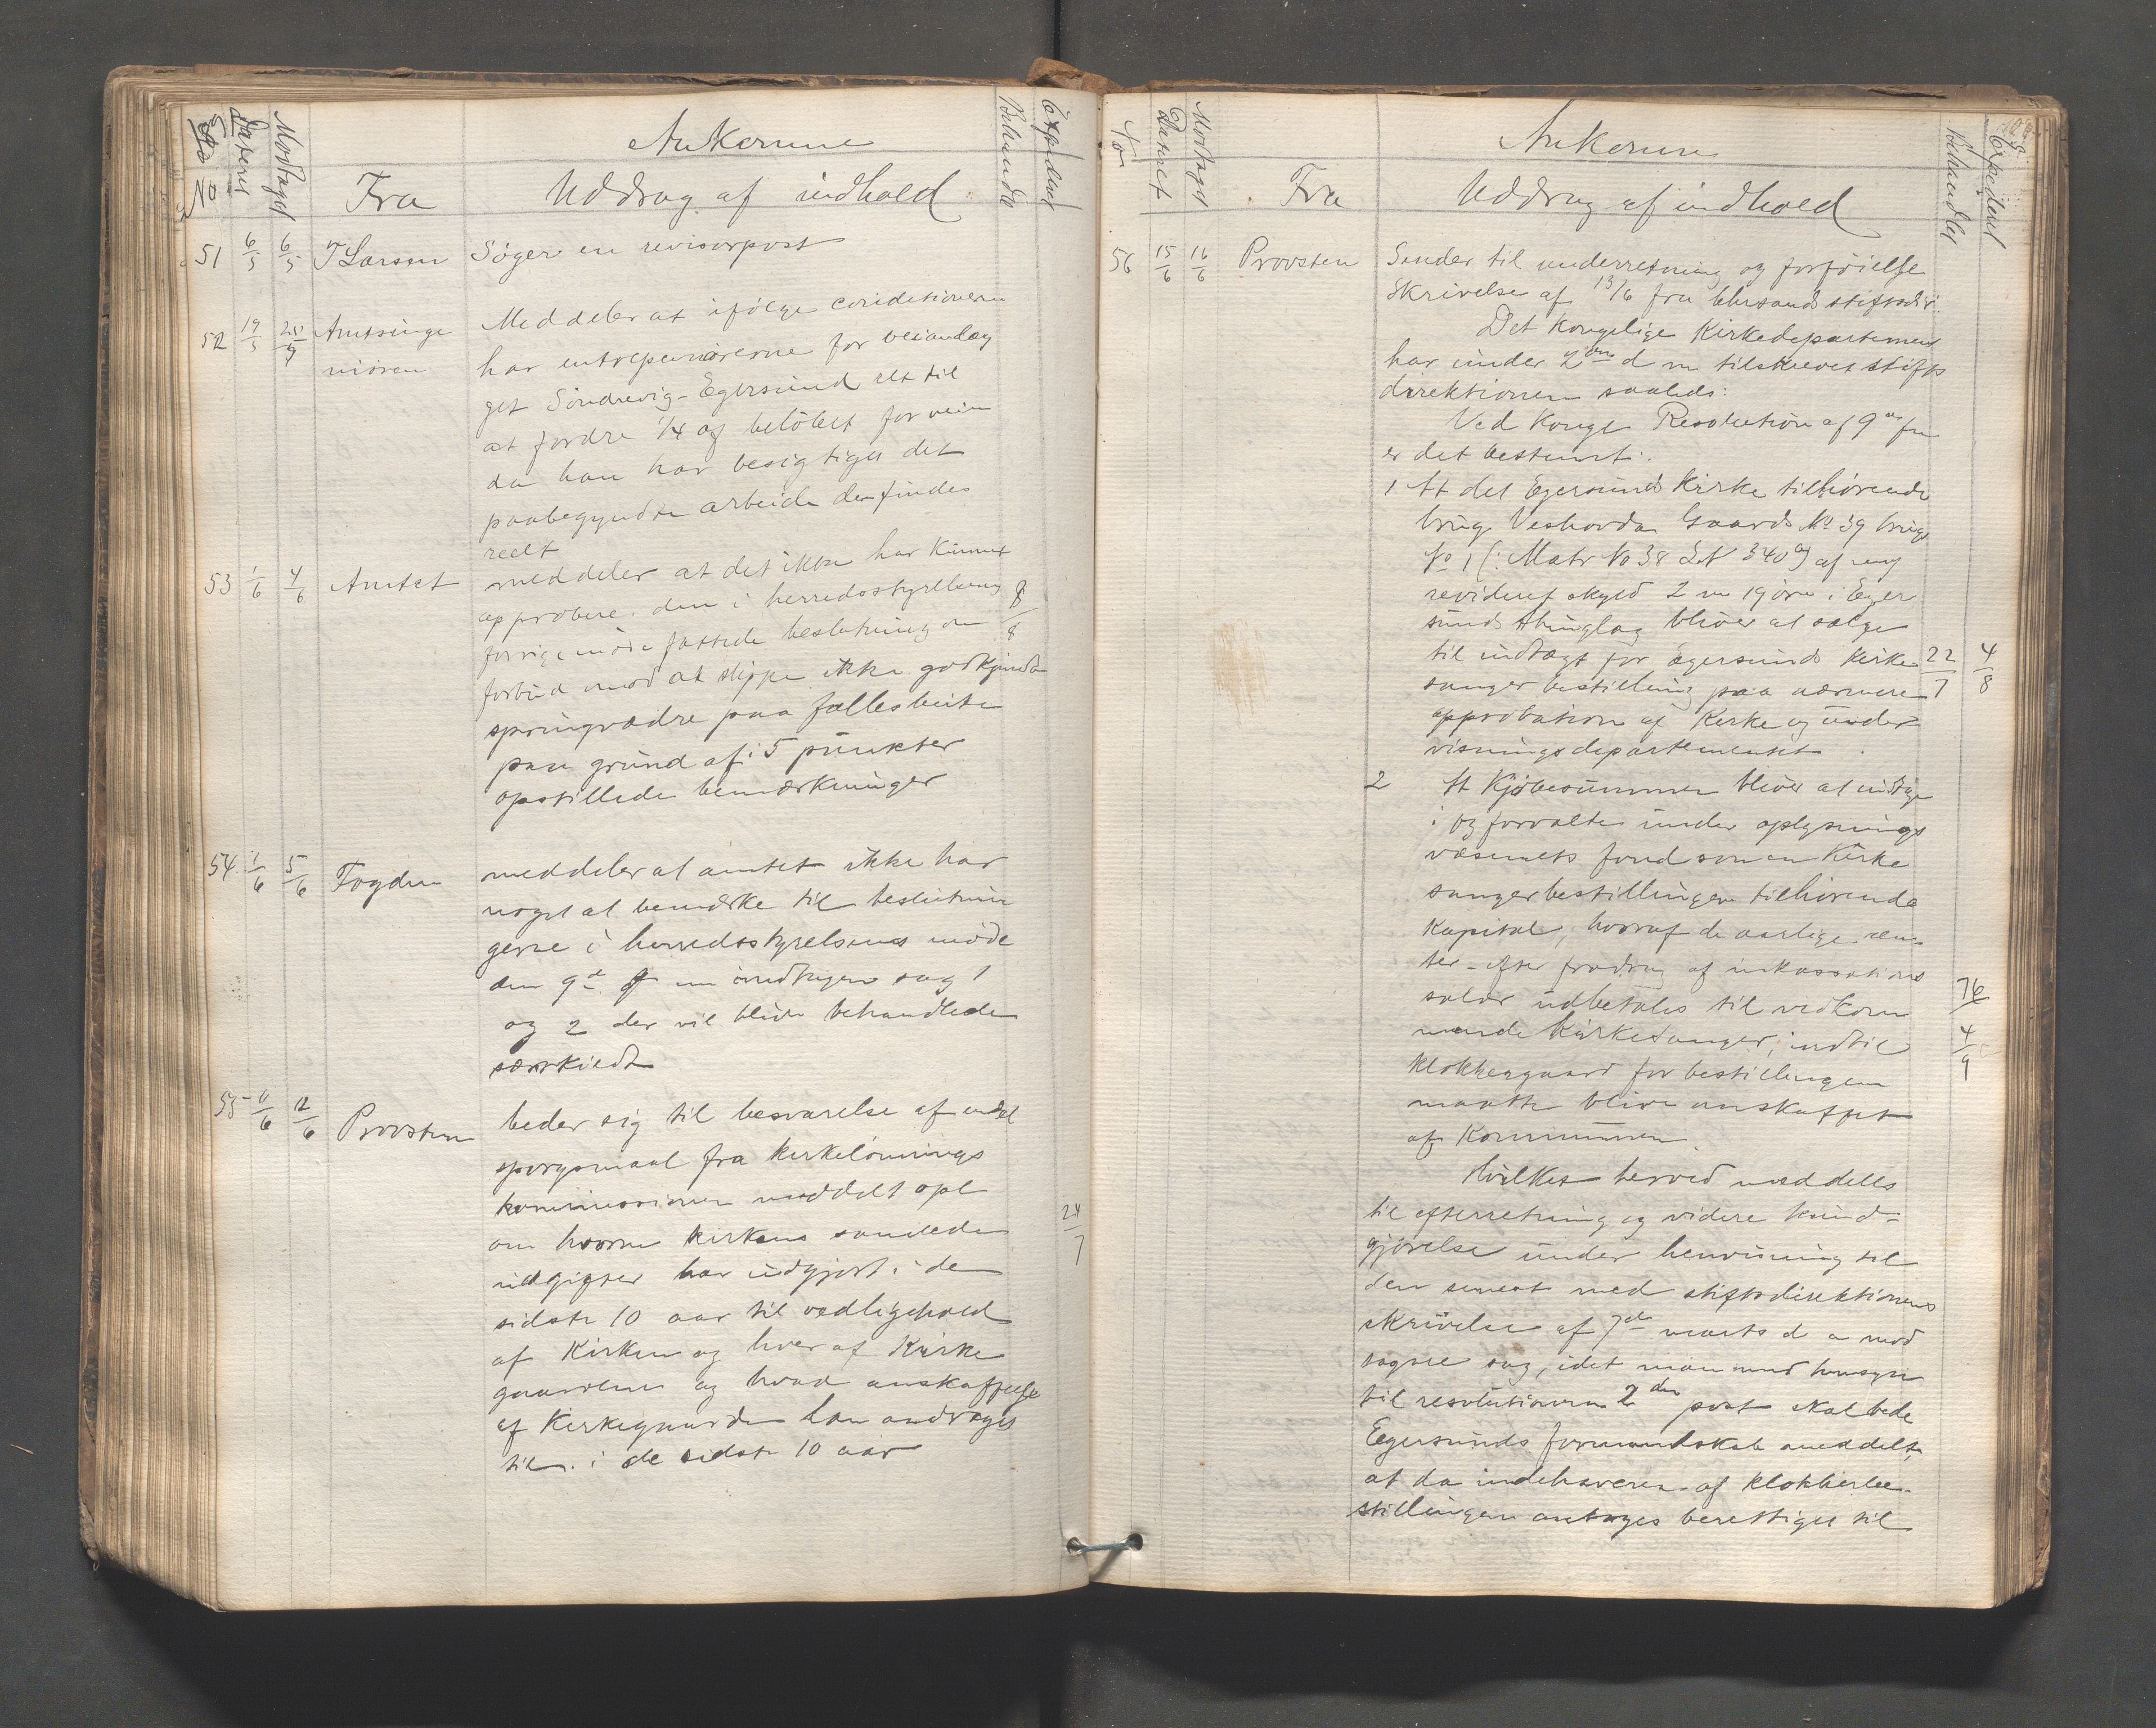 Ankomne
No Dateret Modtaget Fra Uddrag af indhold Behandlet Expederet
51 6/5 6/5 T Larsen Søger en revisorpost
52 19/5 Amtsinge
niøren
Meddeler at ifølge conditionerne
har entreprenørerne for veianlæg
get Søndrevig-Egersund ret til
at fordre 1/4 af beløbet for veien
da han har besigtiget det
paabegyndte arbeide der findes
reelt
53 1/6 4/6 Amtet meddeler at det ikke har kunnet
approbere den i herredsstyrelsens
forrige møde fattede beslutning om
forbud mod at slippe ikke godkjendte
springvædre paa fællesbeite
paa grund af i 5 punkter
opstillede bemærkninger
8/8
54 1/6 5/6 Fogden meddeler at amtet ikke har
noget at bemærke til beslutnin
gerne i herredsstyrelsens møde
den 9de undtagen sag 1
og 2 der vil blive behandlede
særskiedt
55 11/6 12/6 Provsten beder sig til besvarelse af endel
spørgsmaal fra kirkelønnings
kommissionen meddelt opl
om hvorm kirkens samlede
udgifter har udgjort i de
sidste 10 aar til vedligehold
af Kirken og hver af Kirke
gaardene og hvad anskaffelse
af Kirkegaarde har andraget
til i de sidste 10 aar
24/7
Ankomne
No Dateret Modtaget Fra Uddrag af indhold Behandlet Expederet
56 15/6 16/6 Provsten Sender til underretning og forføielse
Skrivelse af 13/6 fra Chrsands stiftsdir.
Det kongelige Kirkedepartement
har under 2den d m tilskrevet stifts
direktionen saaleds:
Ved Kongl Resolution af 9de
er det bestemt:
1 At det Egersunds Kirke tilhørende
brug Veshovda Gaards No 39 brugs
No 1 (: Matr No 38 L No 340a) af ny
revideret skyld 2 m 19 øre i Eger
sunds thinglag bliver at sælge
til indtægt for Egersunds Kirke
sanger bestilling paa nærmere
approbation af Kirke og under
visningsdepartementet.
22/7 4/8
2 At Kjøbesummen bliver at indtage
i og forvalte under oplysnings
væsenets fond som en Kirke
sangerbestillingen tilhørende
Kapital, hvoraf de aarlige ren
ter - efter fradrag af inkassations
salær udbetales til vedkom
mende Kirkesanger, indtil
klokkergaard for bestillingen
maatte blive anskaffet
af Kommunen.
76
4/9
Hvilket herved meddeles
til efterretning og videre kund-
gjørelse under henvisning til
den senest med stiftsdirektionens
skrivelse af 7de marts d a mod
tagne sag, idet man med hensyn
til resolutionens 2den post skal bede
Egersunds formandskab meddelt,
at da indehaveren af klokkerbe-
stillingen antages berettiget til